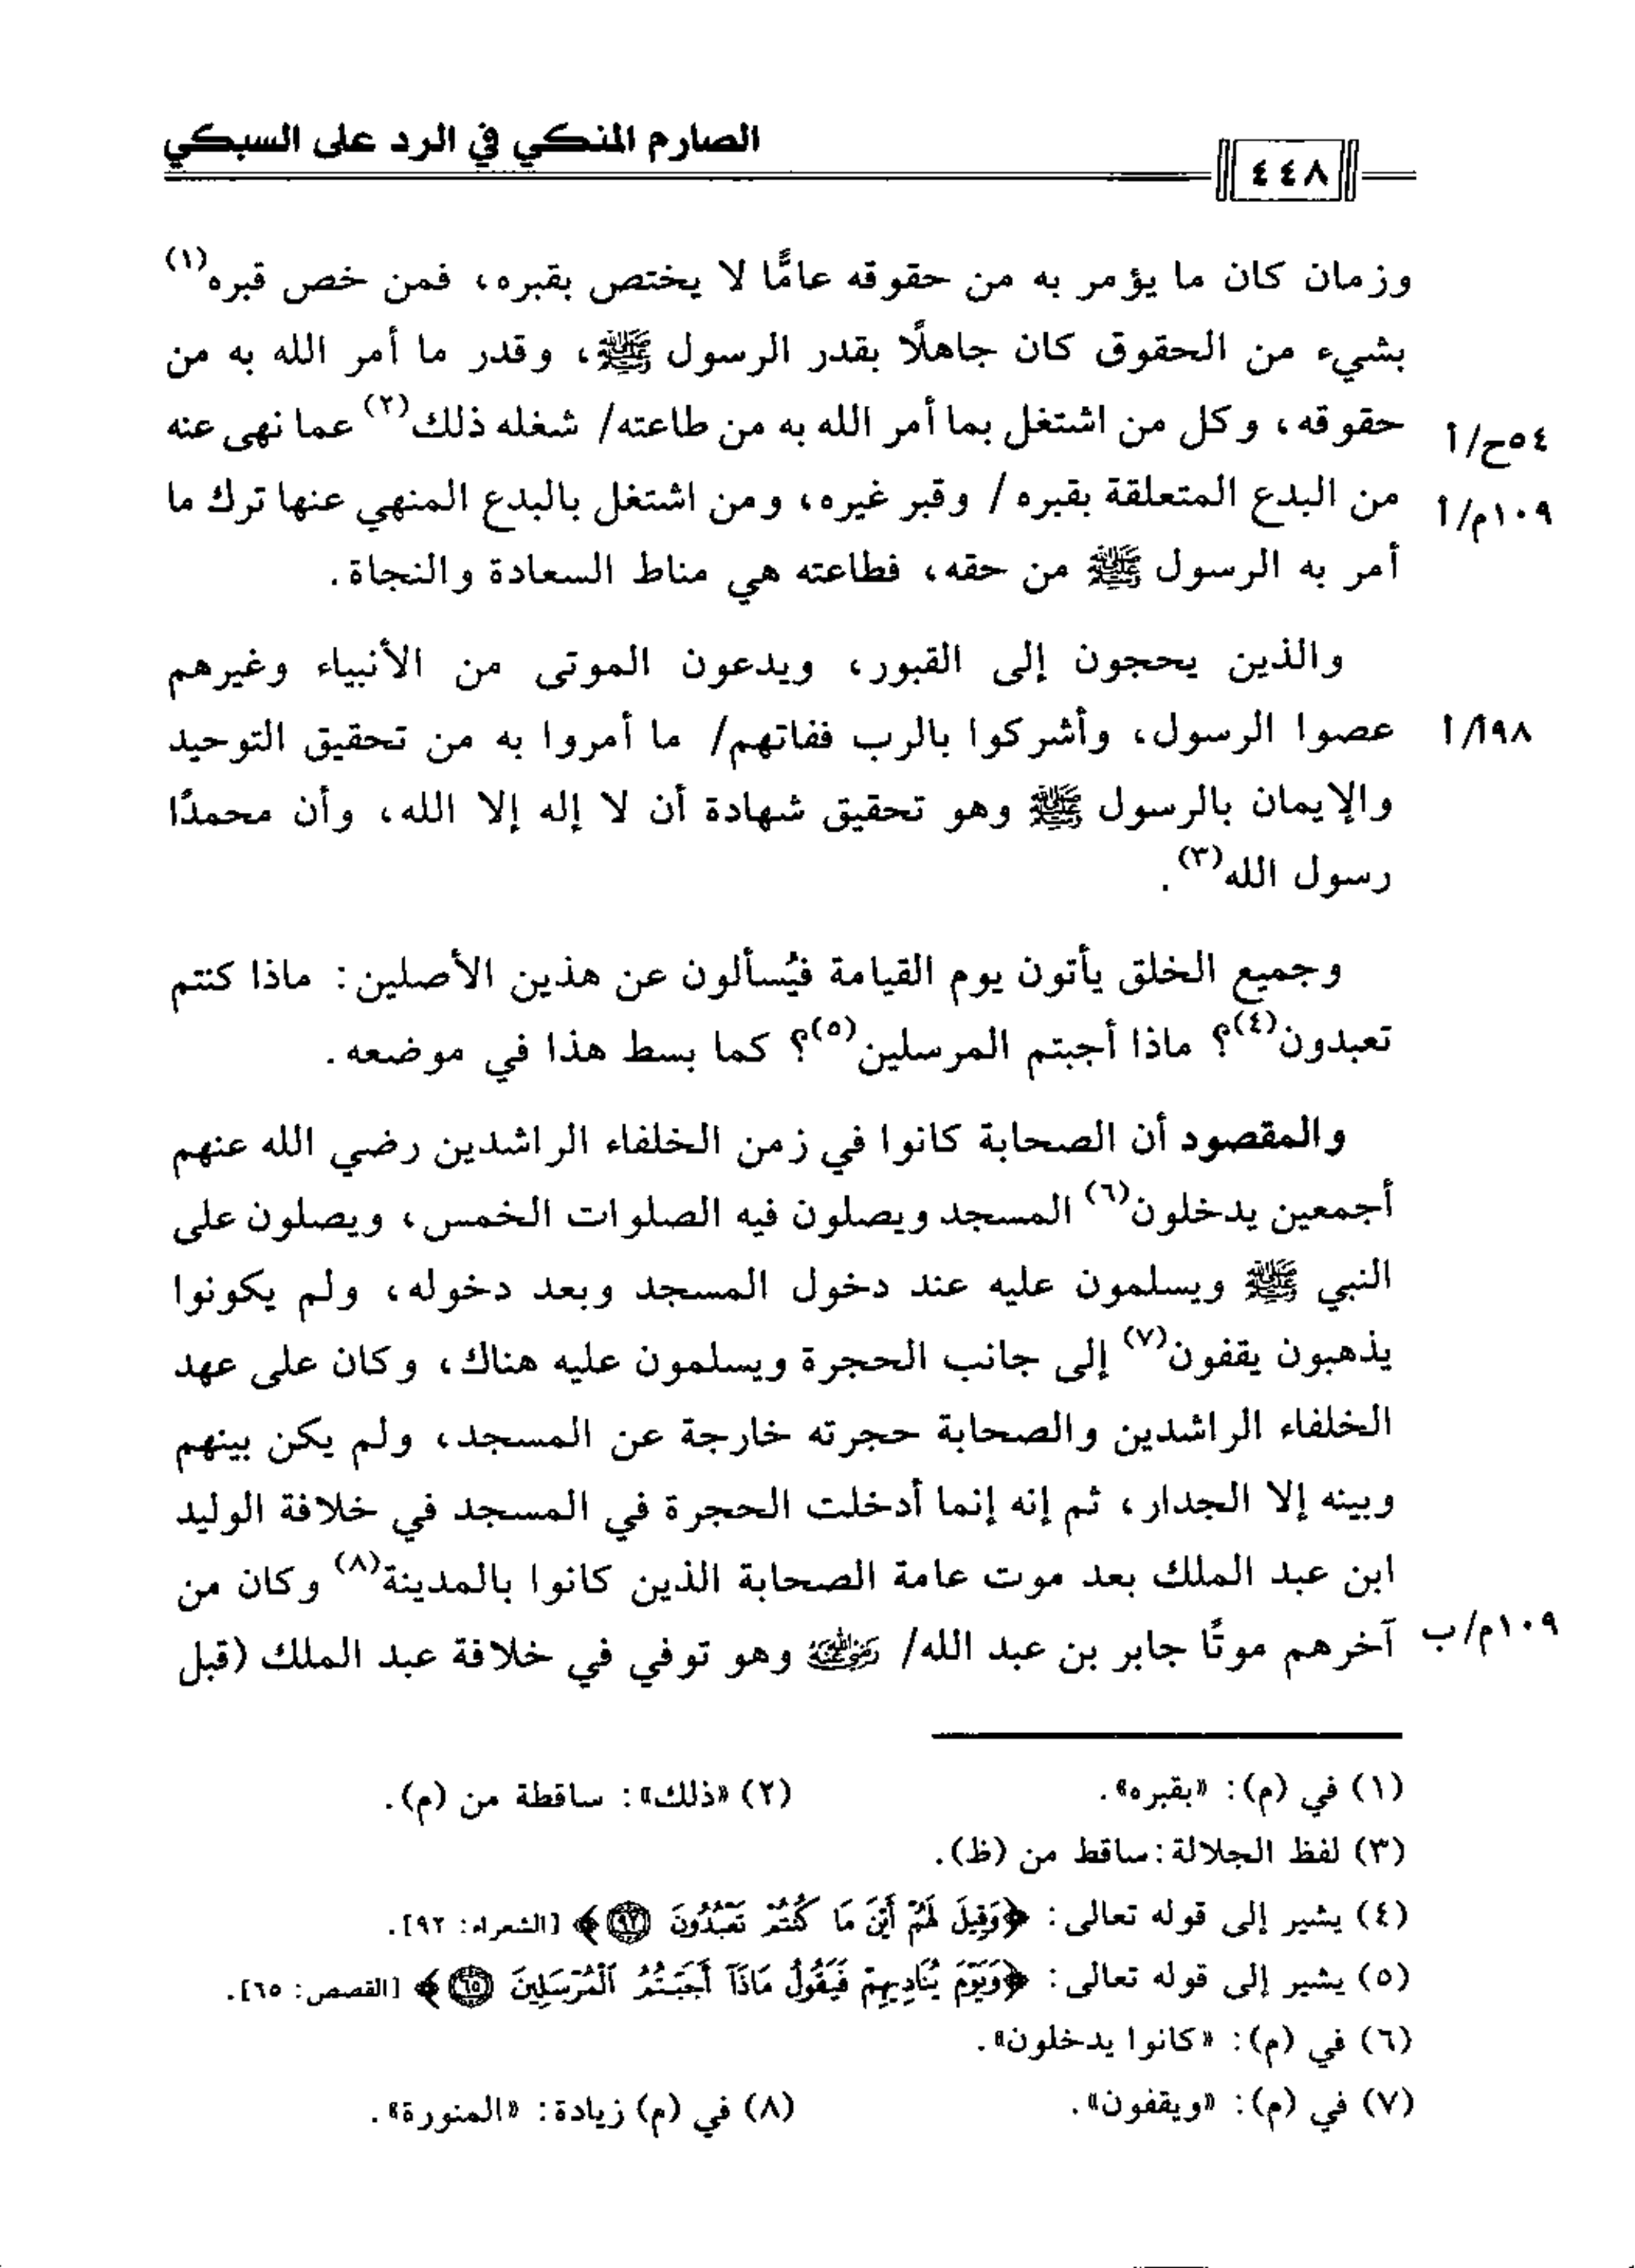 الصارم المنكي في الرد على السبكي
٤٤٨
وزمان كان ما يؤمر به من حقوقه عامًّا لا يختص بقبره، فمن خص قبره(١)
بشيء من الحقوق كان جاهلًا بقدر الرسول ﷺ، وقدر ما أمر الله به من
حقوقه، وكل من اشتغل بما أمر الله به من طاعته/ شغله ذلك(٢) عما نهى عنه
٥٤ح/أ
من البدع المتعلقة بقبره/ وقبر غيره، ومن اشتغل بالبدع المنهي عنها ترك ما
١٠٩م/أ
أمر به الرسول ﷺ من حقه، فطاعته هي مناط السعادة والنجاة.
والذين يحجون إلى القبور، ويدعون الموتى من الأنبياء وغيرهم
عصوا الرسول، وأشركوا بالرب ففاتهم/ ما أمروا به من تحقيق التوحيد
١٩٨/أ
والإيمان بالرسول ﷺ وهو تحقيق شهادة أن لا إله إلا الله، وأن محمدًا
رسول الله(٣).
وجميع الخلق يأتون يوم القيامة فيُسألون عن هذين الأصلين: ماذا كنتم
تعبدون(٤)؟ ماذا أجبتم المرسلين(٥)؟ كما بسط هذا في موضعه.
والمقصود أن الصحابة كانوا في زمن الخلفاء الراشدين رضي الله عنهم
أجمعين يدخلون(٦) المسجد ويصلون فيه الصلوات الخمس، ويصلون على
النبي ﷺ ويسلمون عليه عند دخول المسجد وبعد دخوله، ولم يكونوا
يذهبون يقفون(٧) إلى جانب الحجرة ويسلمون عليه هناك، وكان على عهد
الخلفاء الراشدين والصحابة حجرته خارجة عن المسجد، ولم يكن بينهم
وبينه إلا الجدار، ثم إنه إنما أدخلت الحجرة في المسجد في خلافة الوليد
ابن عبد الملك بعد موت عامة الصحابة الذين كانوا بالمدينة(٨) وكان من
آخرهم موتًا جابر بن عبد الله/ رضي الله عنه وهو توفي في خلافة عبد الملك (قبل
١٠٩م/ب
(١) في (م): «بقبره».
(٢) «ذلك»: ساقطة من (م).
(٣) لفظ الجلالة: ساقط من (ظ).
(٤) يشير إلى قوله تعالى: ﴿وَقِيلَ لَهُمْ أَيْنَ مَا كُنتُمْ تَعْبُدُونَ ۝٩٢﴾ [الشعراء: ٩٢].
(٥) يشير إلى قوله تعالى: ﴿وَيَوْمَ يُنَادِيهِمْ فَيَقُولُ مَاذَآ أَجَبْتُمُ ٱلْمُرْسَلِينَ ۝٦٥﴾ [القصص: ٦٥].
(٦) في (م): «كانوا يدخلون».
(٧) في (م): «ويقفون».
(٨) في (م) زيادة: «المنورة».